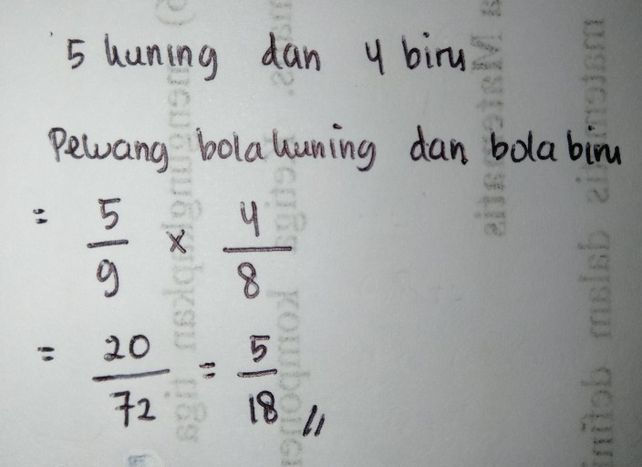 5 kuning dan 4 biru
Pewang bola kuning dan bola biru
= 5/9 x 4/8
= 20/72 = 5/18 //